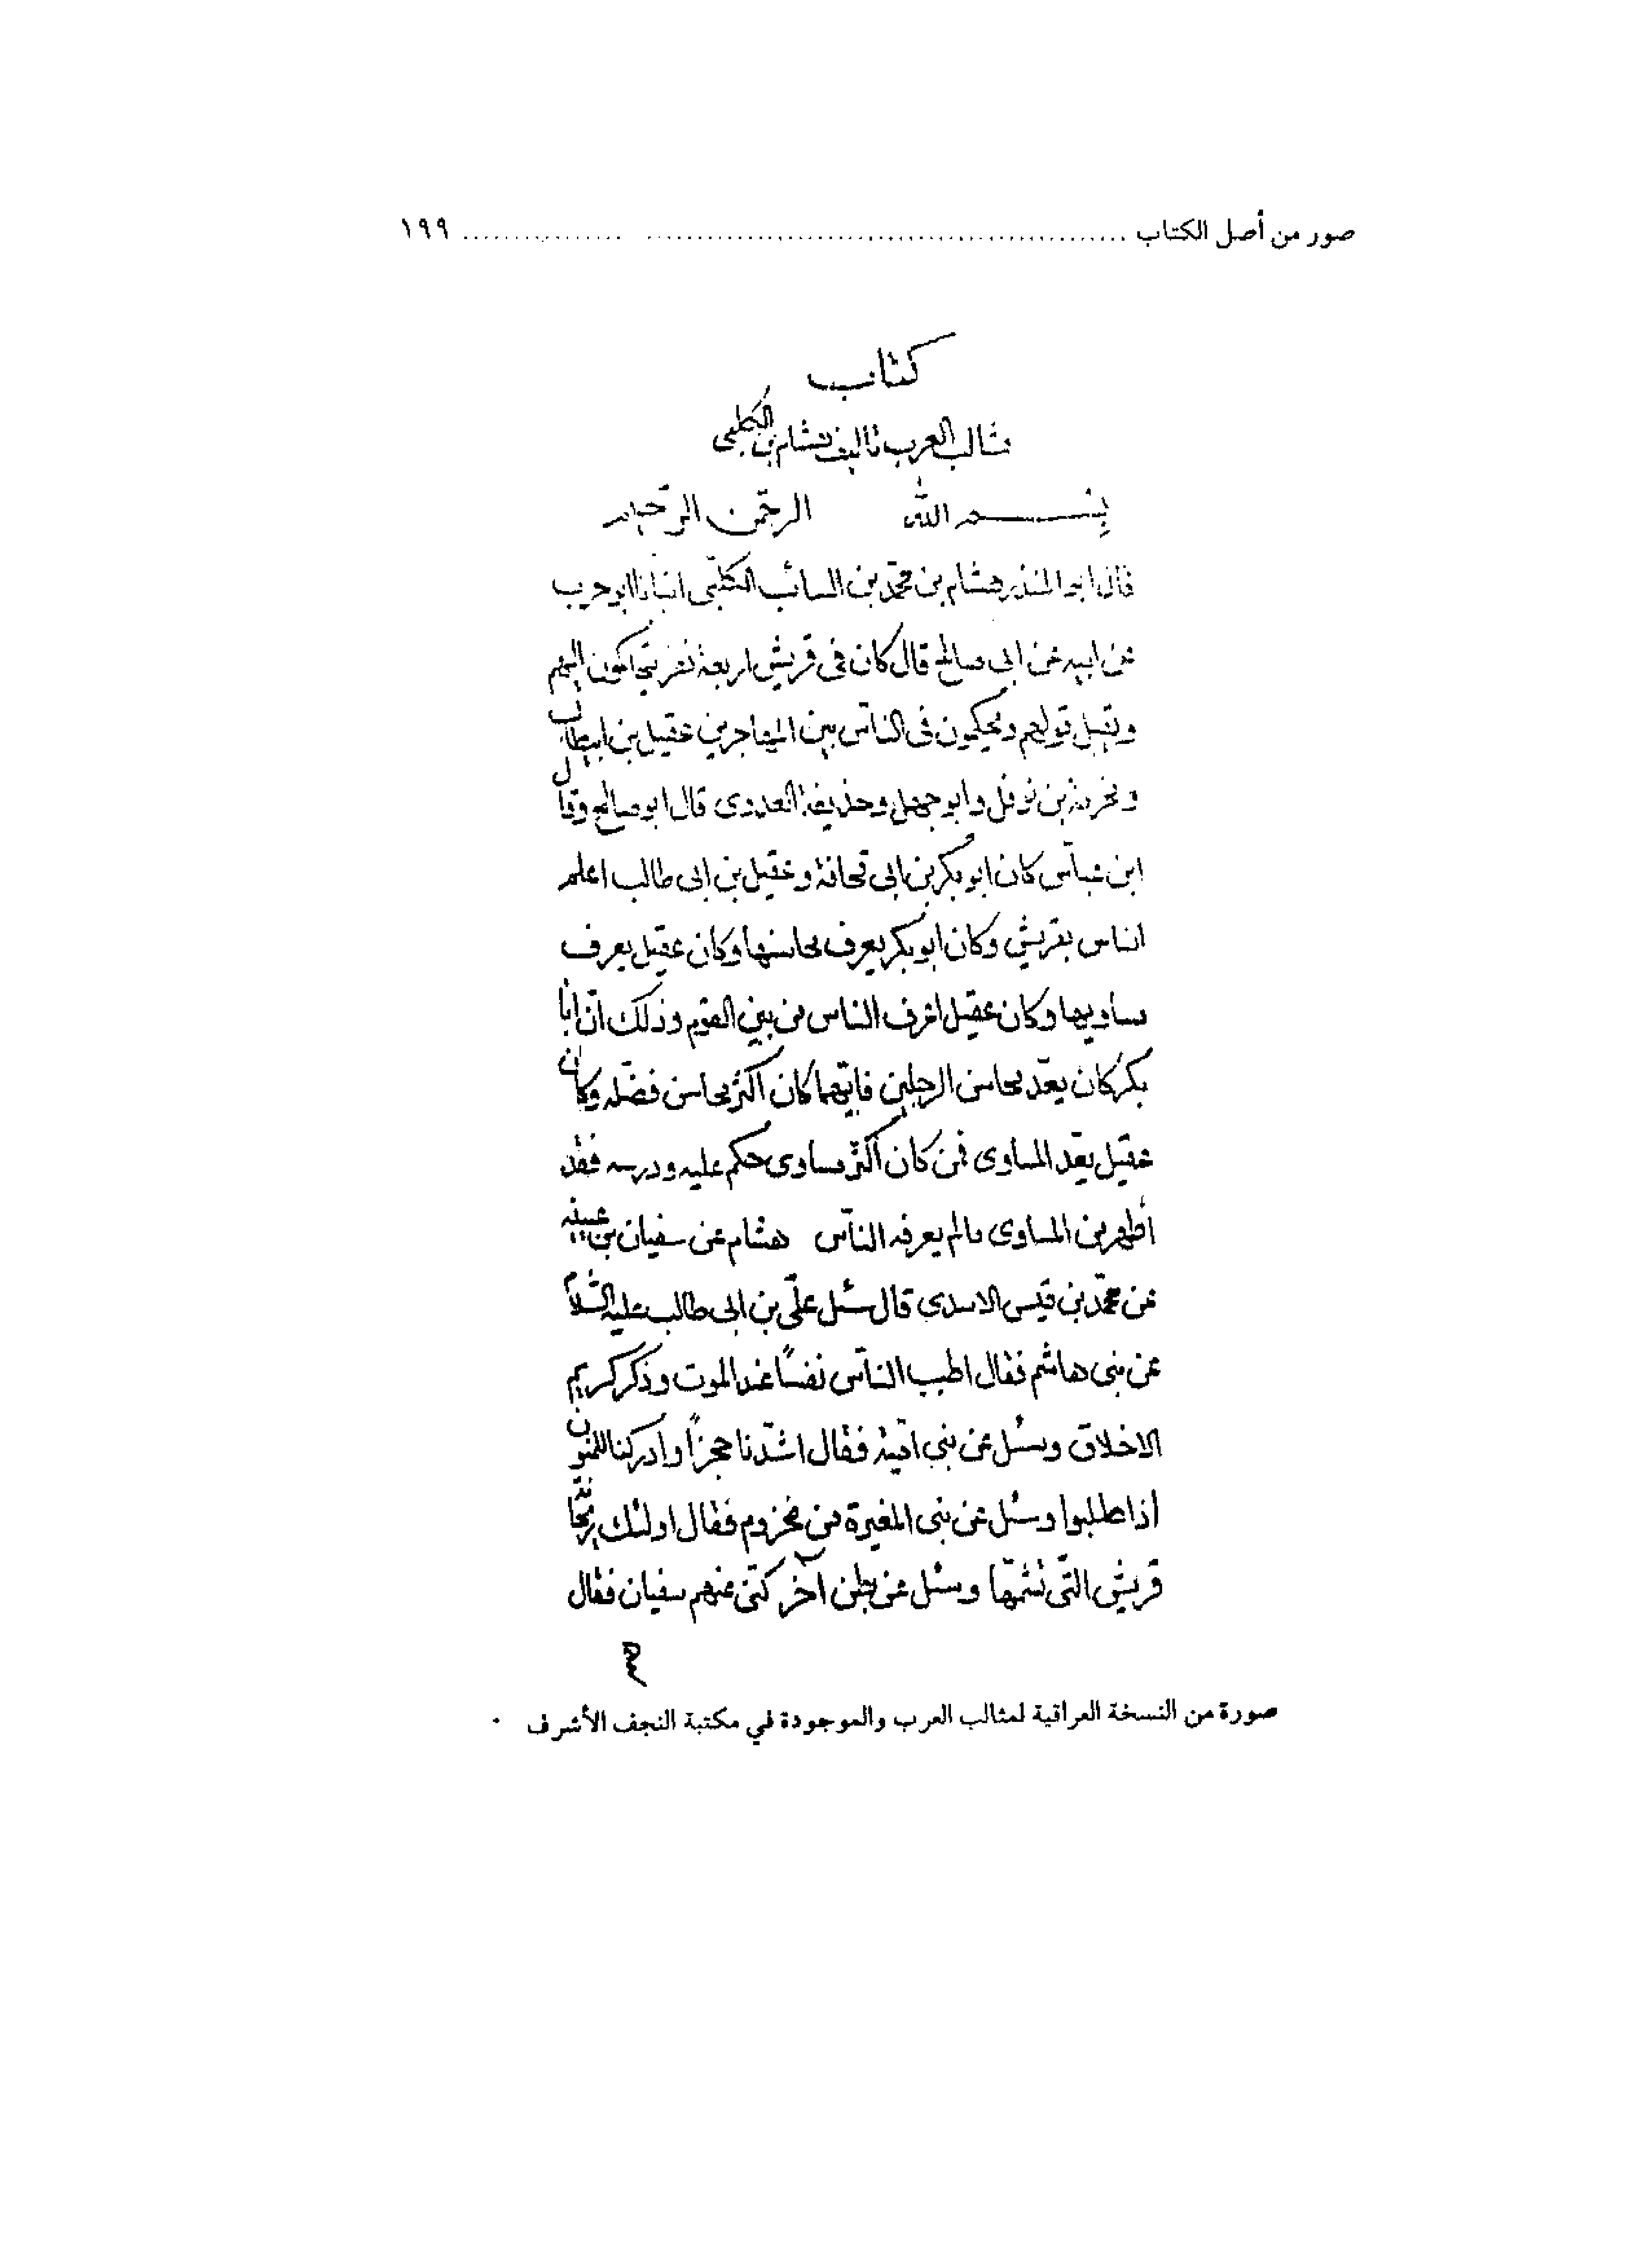 صور من أصل الكتاب ........................................................ ١٩٩
كتاب
مثالب العرب تأليف هشام بن الكلبي
بسم الله الرحمن الرحيم
قال ابو المنذر هشام بن محمّد بن السائب الكلبّى انبانا ابو حرب
عن ابيه عن ابى صالح قال كان فى قريش اربعة نفر يتحاكمون اليهم
ويقبل قولهم ويحكمون فى الناّس بين المهاجرين عقيل بن ابيطالب
ومخرمة بن نوفل وابو جهل وحذيفة العدوى قال ابو صالح وقال
ابن عبّاس كان ابو بكر بن ابى قحافة وعقيل بن ابى طالب اعلم
الناس بقريش وكان ابو بكر يعرف محاسنها وكان عقيل يعرف
مساويها وكان عقيل اعرف الناس من بين القوم وذلك انّ ابا
بكر كان يعّد محاسن الرجلين فايّهما كان اكثر محاسن فضّله وكان
عقيل يعّد المساوى فمن كان اكثر مساوى حكم عليه ودرسه فقد
أظهر من المساوى مالم يعرفه الناّس هشام عن سفيان بن عيينه
عن محمّد بن قيس الاسدى قال سئل علّى بن ابى طالب عليه السّلام
عن بنى هاشم فقال اطيب الناّس نفسًا عند الموت وذكر كريم
الاخلاق وسئل عن بنى اميّة فقال اشدّنا حجزاً وادركنا للمنون
اذا طلبوا وسئل عن بنى المغيرة من مخزوم فقال اولئك ريحانة
قريش التّى نشمّها وسئل عن بطن آخر كنّى عنهم سفيان فقال
صورة من النسخة العراقية لمثالب العرب والموجودة في مكتبة النجف الأشرف .